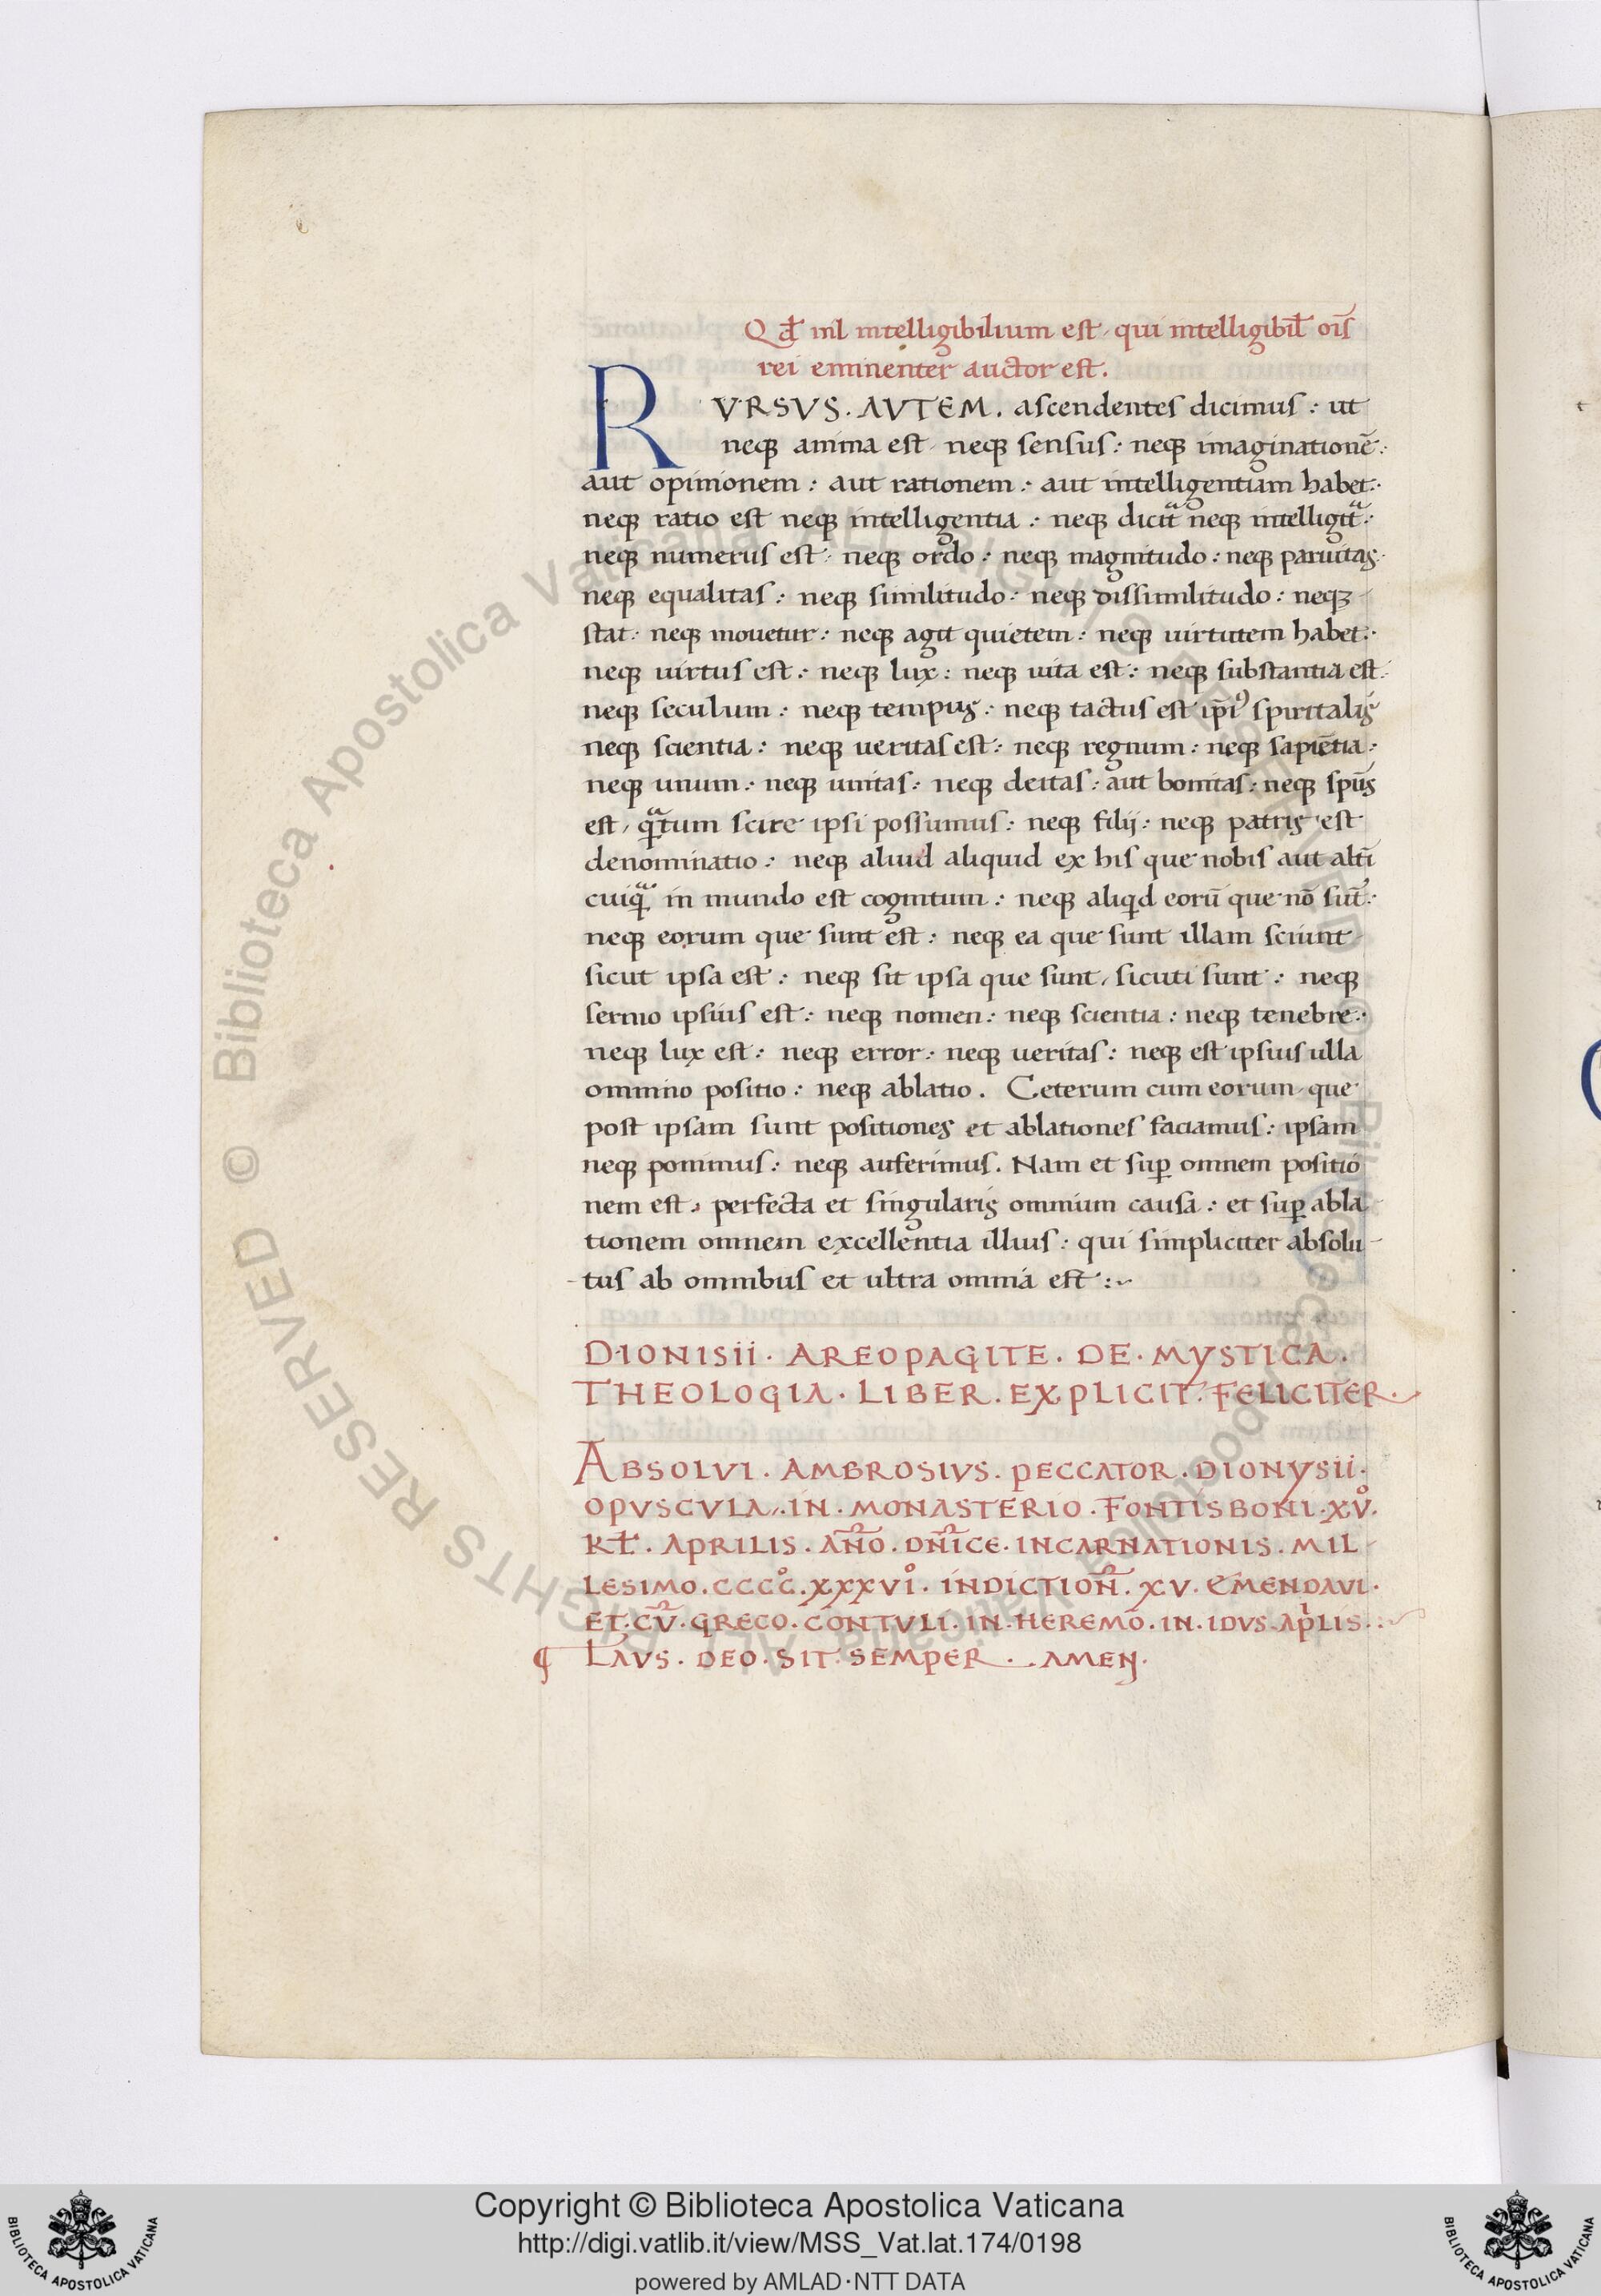 Qđ nīl intelligibilium est, qui intelligibiƚ oīs
rei eminenter auctor est.
RVRSVS. AVTEM. ascendentes dicimus: ut
neqꝫ anima est, neqꝫ sensus: neqꝫ imaginationē:
aut opinionem: aut rationem: aut intelligentiam habet:
neqꝫ ratio est neqꝫ intelligentia: neqꝫ dicitᵃ neqꝫ intelligitᵃ:
neqꝫ numerus est: neqꝫ ordo: neqꝫ magnitudo: neqꝫ paruitas:
neqꝫ equalitas: neqꝫ similitudo: neqꝫ dissimilitudo: neqꝫ
stat: neqꝫ mouetur: neqꝫ agit quietem: neqꝫ uirtutem habet:
neqꝫ uirtus est: neqꝫ lux: neqꝫ uita est: neqꝫ substantia est:
neqꝫ seculum: neqꝫ tempus: neqꝫ tactus est ip̄iꝰ spiritalis
neqꝫ scientia: neqꝫ ueritas est: neqꝫ regnum: neqꝫ sapiētia:
neqꝫ unum: neqꝫ unitas: neqꝫ deitas: aut bonitas: neqꝫ spūs
est, qᵃ̄tum scire ipsi possumus: neqꝫ filij: neqꝫ patris est
denominatio: neqꝫ aliud aliquid ex his que nobis aut alt̄i
cuiqᵃ̄ in mundo est cognitum: neqꝫ aliqd eorū que nō sūt:
neqꝫ eorum que sunt est: neqꝫ ea que sunt illam sciunt
sicut ipsa est: neqꝫ sit ipsa que sunt, sicuti sunt: neqꝫ
sermo ipsius est: neqꝫ nomen: neqꝫ scientia: neqꝫ tenebre:
neqꝫ lux est: neqꝫ error: neqꝫ ueritas: neqꝫ est ipsius ulla
omnino positio: neqꝫ ablatio. Ceterum cum eorum que
post ipsam sunt positiones et ablationes faciamus: ipsam
neqꝫ ponimus: neqꝫ auferimus. Nam et suꝑ omnem positio
nem est, perfecta et singularis omnium causa: et suꝑ abla
tionem omnem excellentia illius: qui simpliciter absolu-
tus ab omnibus et ultra omnia est:~
DIONISII. AREOPAGITE. DE. MYSTICA.
THEOLOGIA. LIBER. EXPLICIT. FELICITER.
ABSOLVI. AMBROSIVS. PECCATOR. DIONYSII.
OPVSCVLA. IN. MONASTERIO. FONTISBONI. XV°.
Kƚ. APRILIS. AÑO. DÑICE. INCARNATIONIS. MIL-
LESIMO. CCCC°. XXXVI°. INDICTIOÑ. XV. EMENDAVI.
ET. CV̄. GRECO. CONTVLI. IN. HEREMO. IN. IDVS. APLIS.
¶ LAVS. DEO. SIT. SEMPER. AMEN.
© Biblioteca Apostolica Vaticana ALL RIGHTS RESERVED © Biblioteca Apostolica Vaticana ALL RIGHTS RESERVED
Copyright © Biblioteca Apostolica Vaticana
http://digi.vatlib.it/view/MSS_Vat.lat.174/0198
powered by AMLAD·NTT DATA
BIBLIOTECA APOSTOLICA VATICANA
BIBLIOTECA APOSTOLICA VATICANA